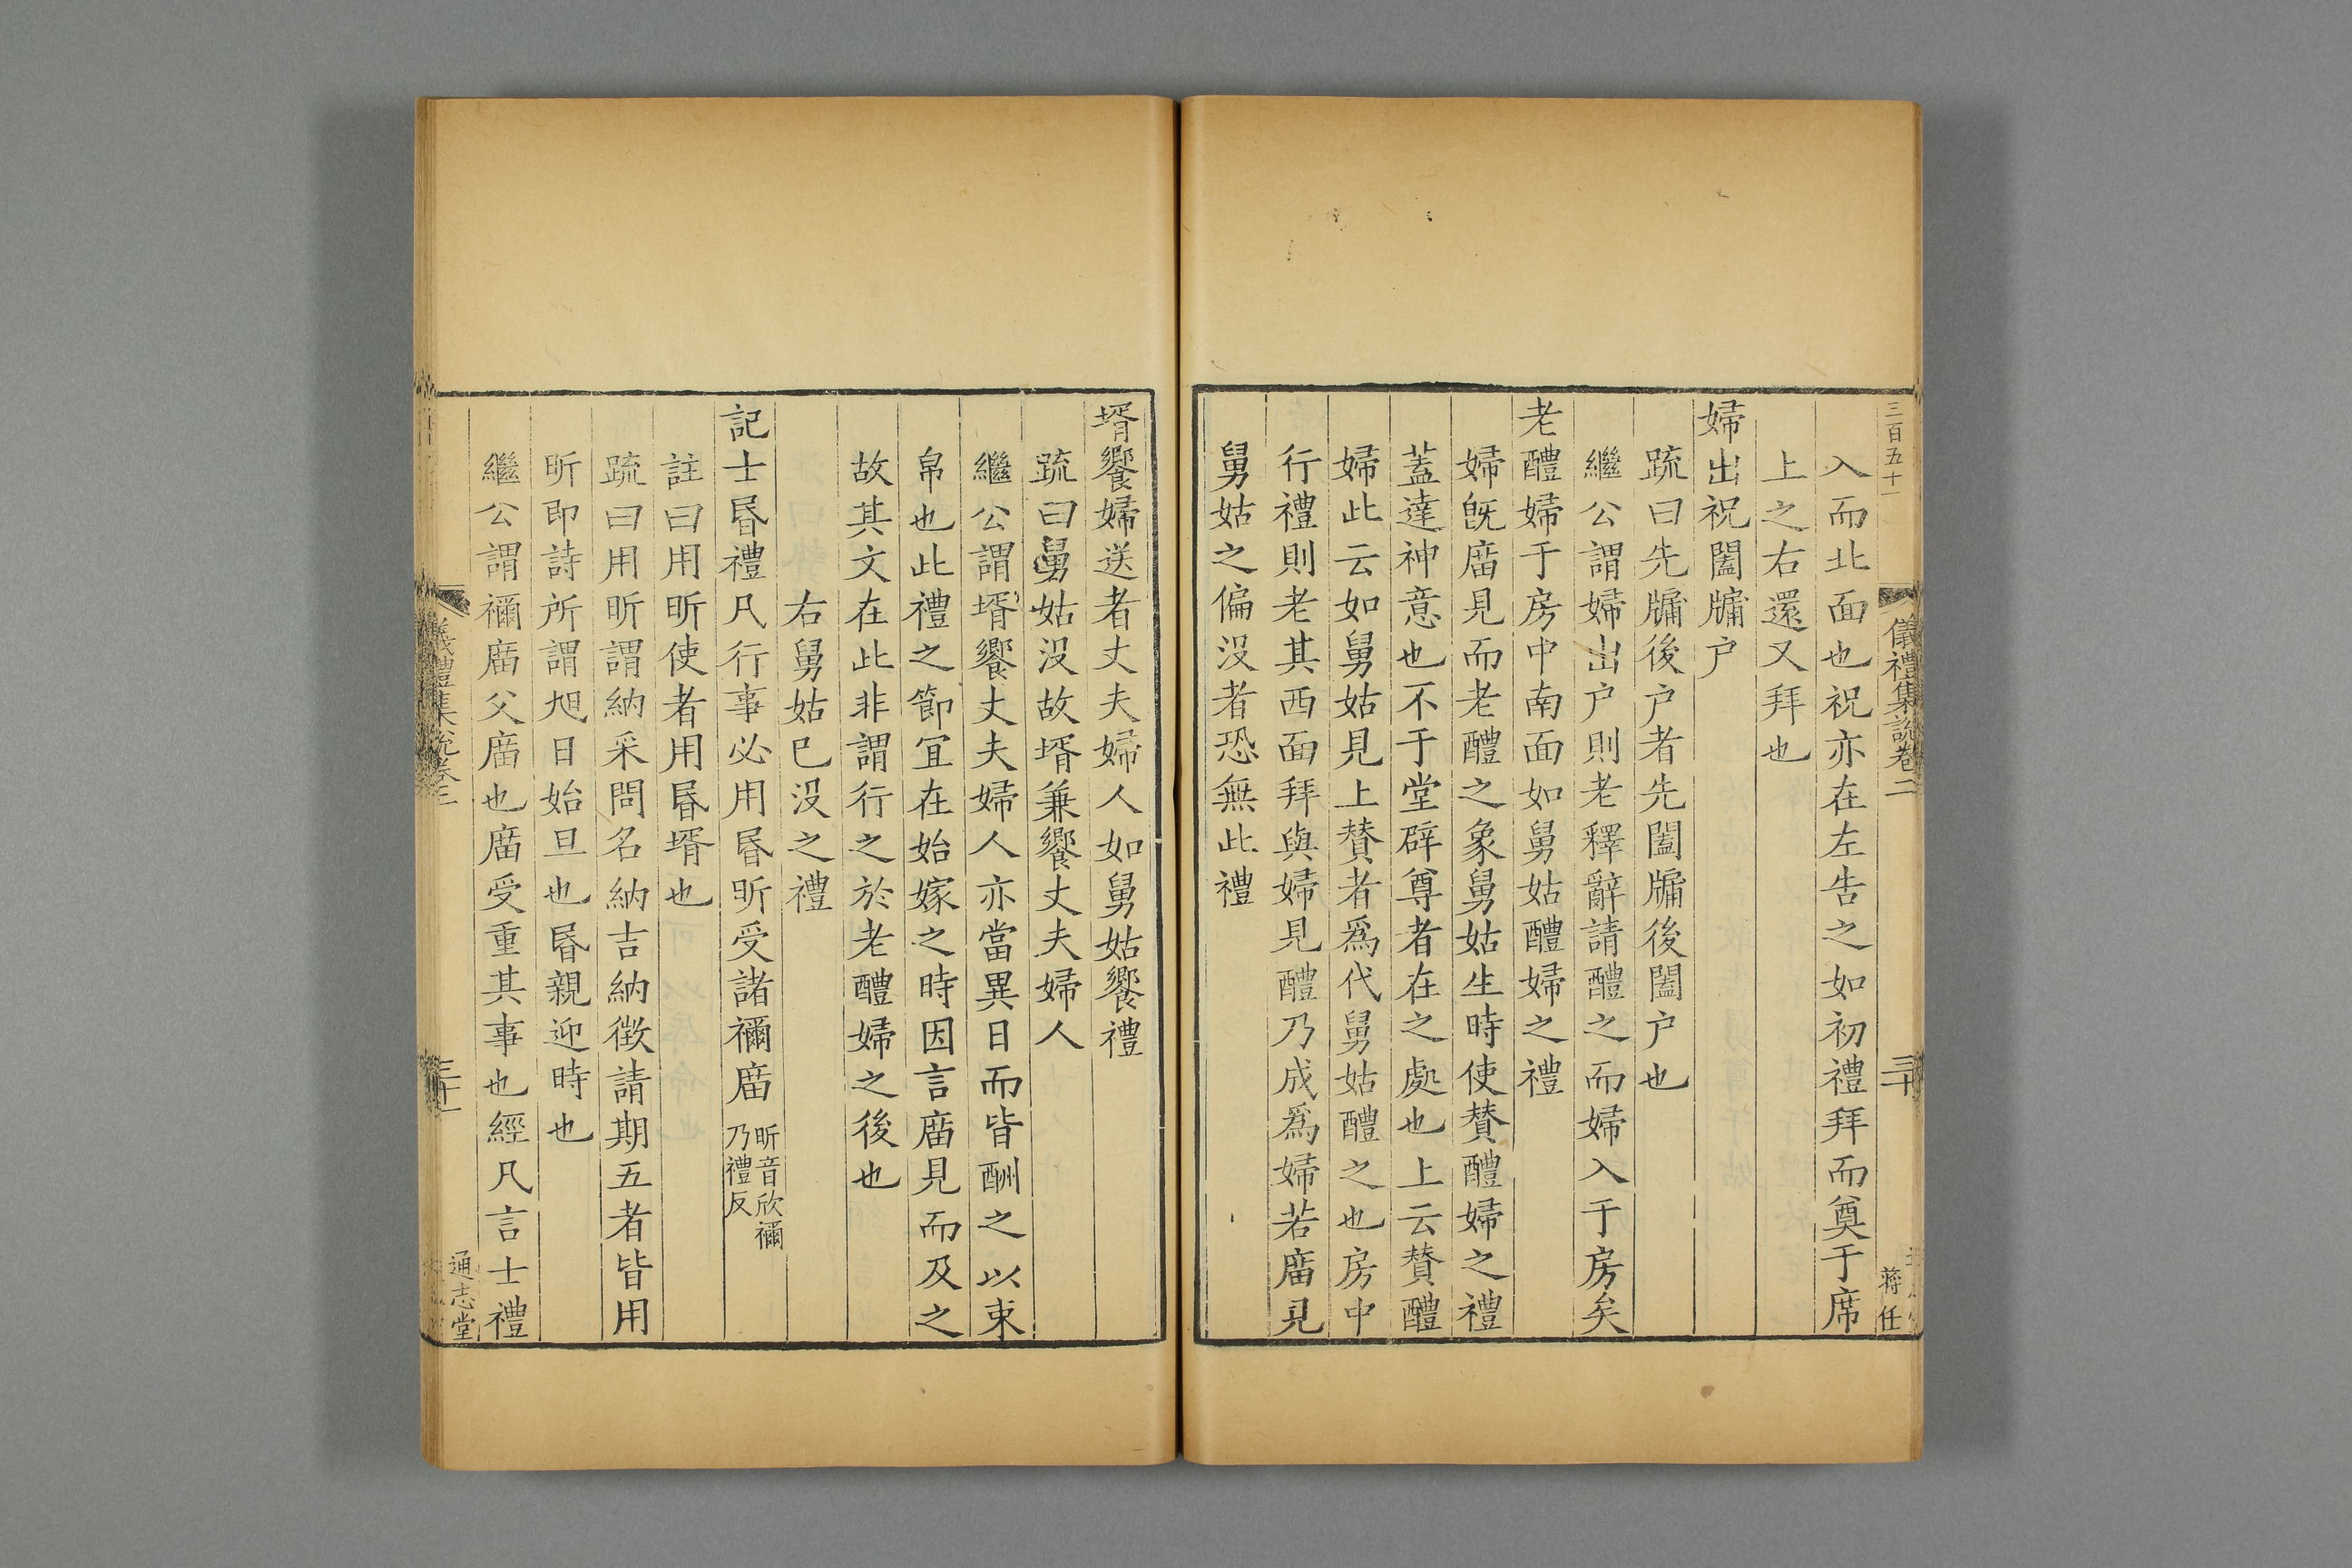 三百五十一
儀禮集說卷二
三十
蔣任
入而北面也祝亦在左告之如初禮拜而奠于席
上之右還又拜也
婦出祝闔牖户
疏曰先牖後户者先闔牖後闔户也
繼公謂婦出户則老釋辭請醴之而婦入于房矣
老醴婦于房中南面如舅姑醴婦之禮
婦旣庿見而老醴之象舅姑生時使賛醴婦之禮
蓋達神意也不于堂辟尊者在之處也上云賛醴
婦此云如舅姑見上賛者爲代舅姑醴之也房中
行禮則老其西面拜與婦見醴乃成爲婦若庿見
舅姑之偏没者恐無此禮
壻饗婦送者丈夫婦人如舅姑饗禮
疏曰舅姑没故壻兼饗丈夫婦人
繼公謂壻饗丈夫婦人亦當異日而皆酬之以束
帛也此禮之節宜在始嫁之時因言庿見而及之
故其文在此非謂行之於老醴婦之後也
右舅姑已没之禮
記士昬禮凡行事必用昬昕受諸禰庿昕音欣禰
乃禮反
註曰用昕使者用昬壻也
疏曰用昕謂納采問名納吉納徴請期五者皆用
昕即詩所謂旭日始旦也昬親迎時也
繼公謂禰庿父庿也庿受重其事也經凡言士禮
儀禮集說卷二
三十一
通志堂